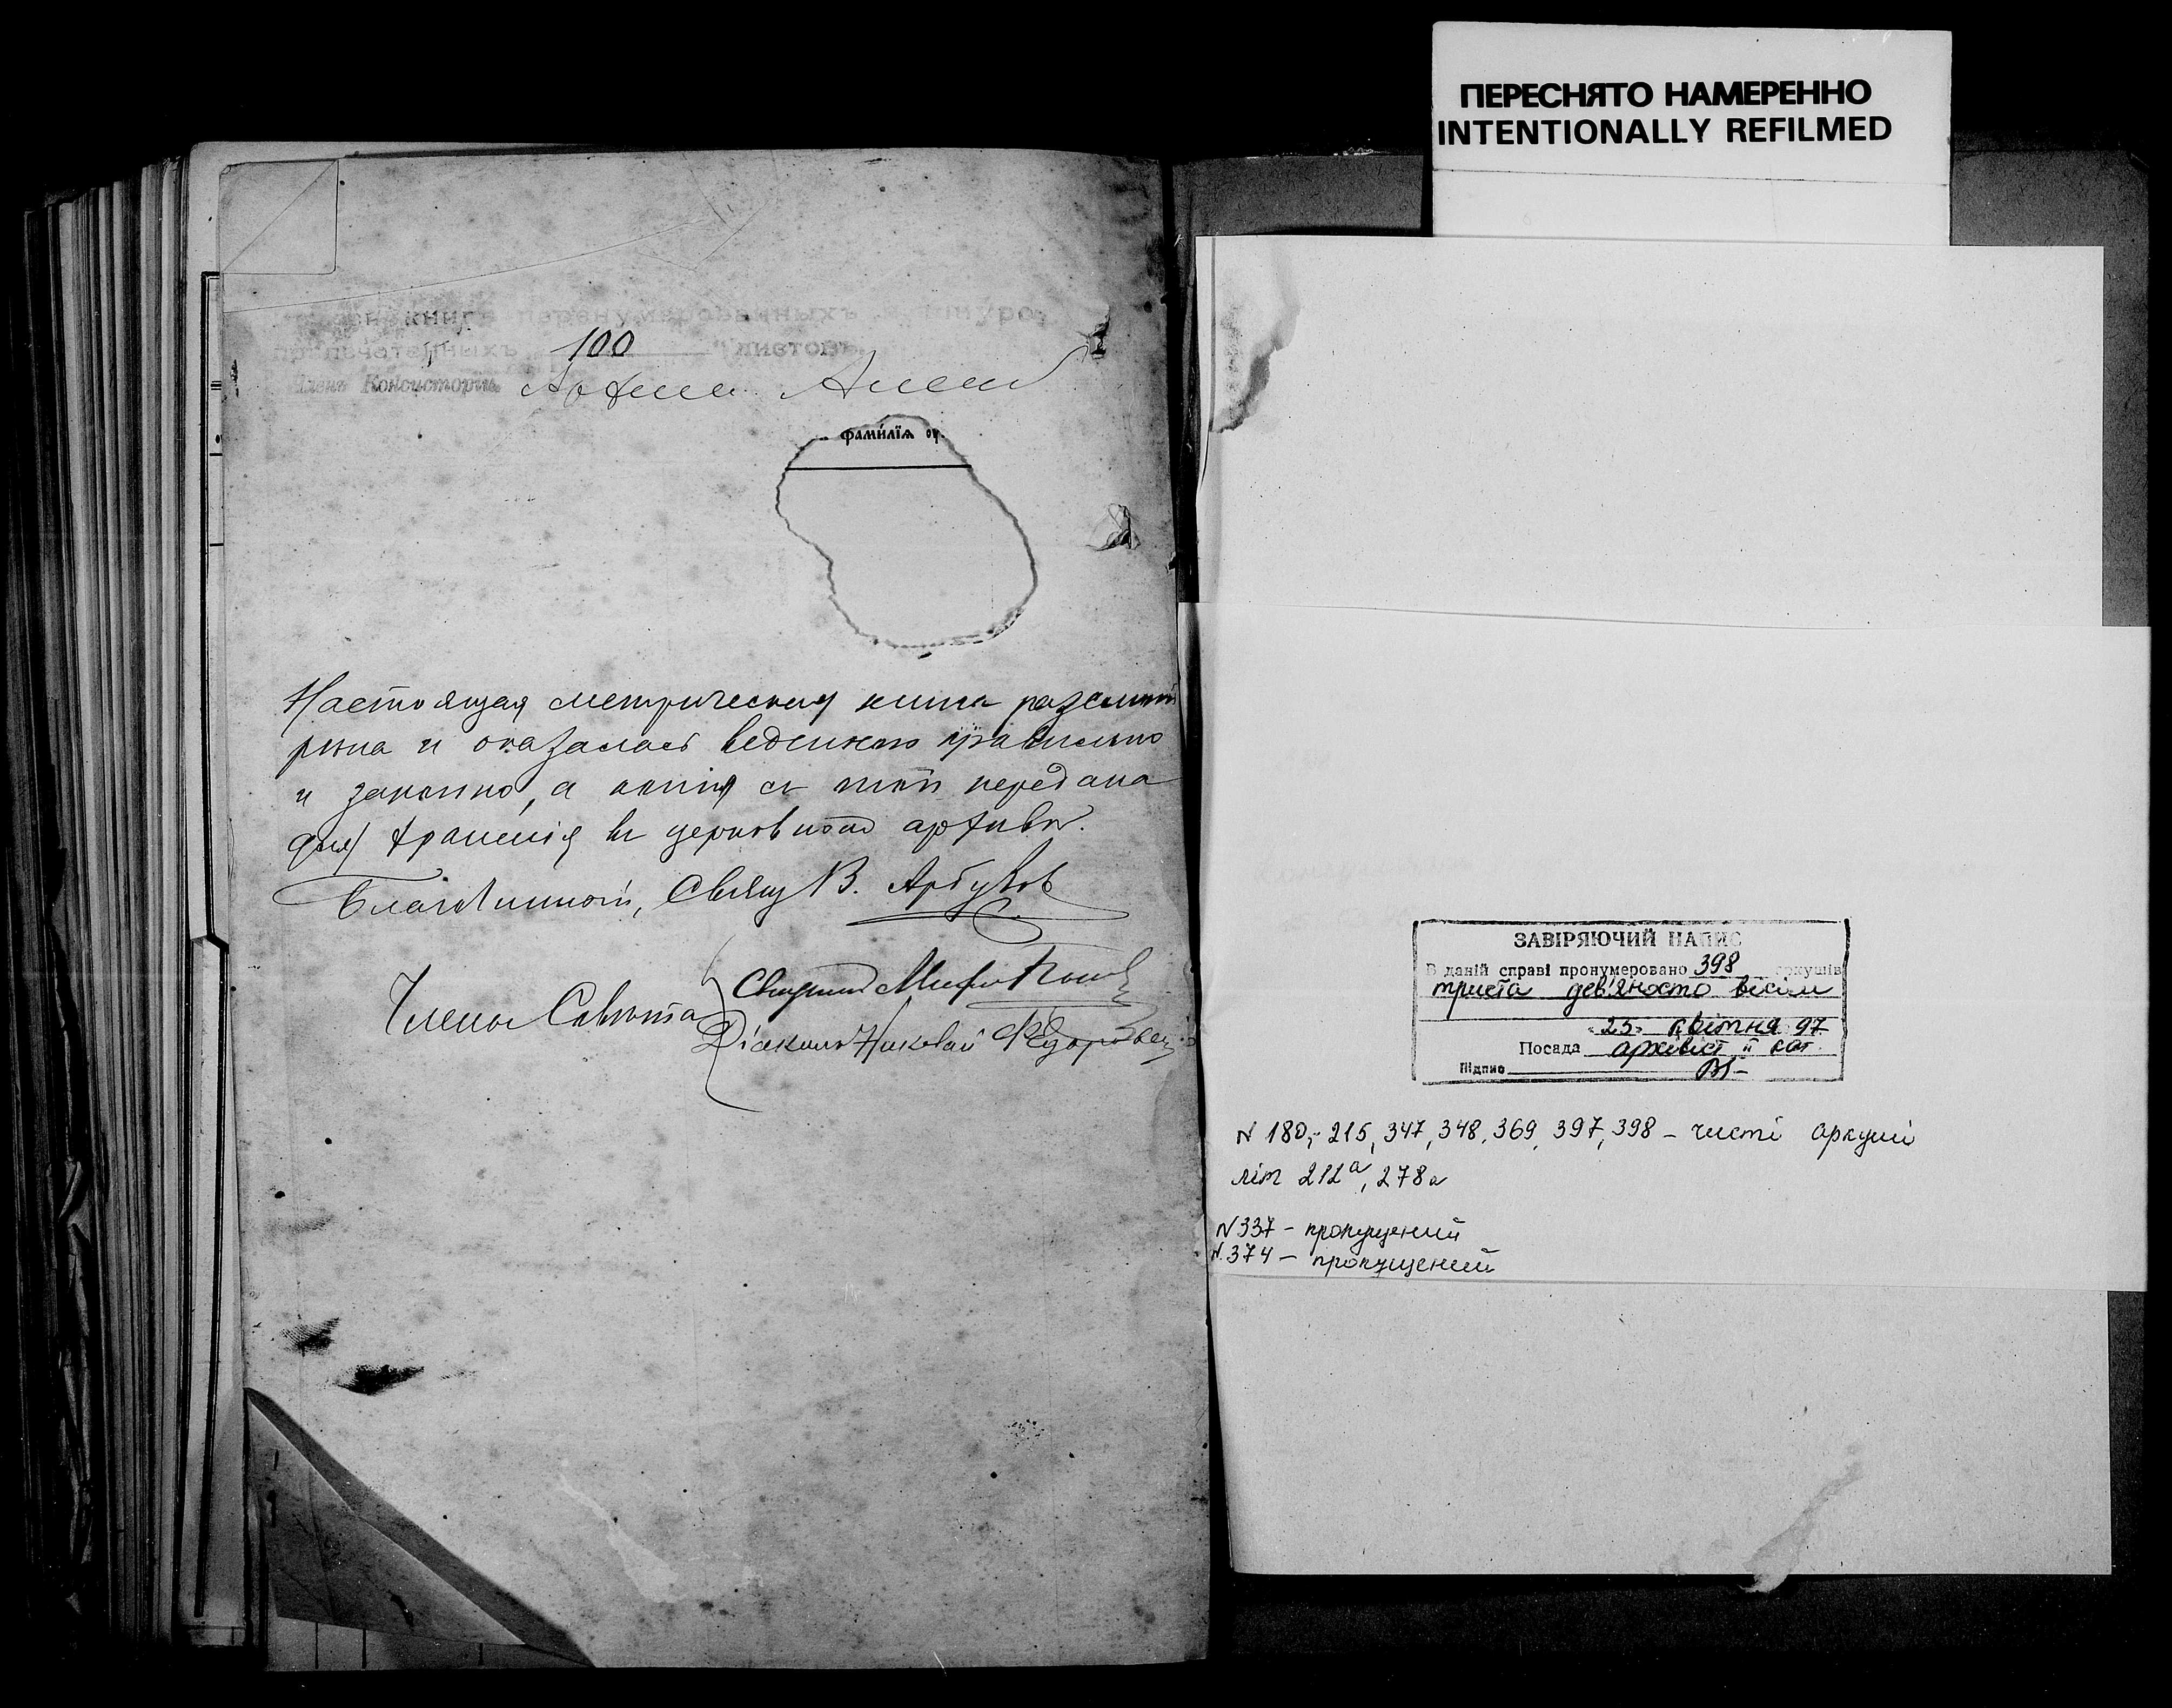 ПЕРЕСНЯТО НАМЕРЕННО
INTENTIONALLY REFILMED
книгѣ перенумерованныхъ шнуро-
припечатанныхъ 100 листовъ
Членъ Консисторіи
фами́лїѧ
Настоящая метрическая книга разсмот
рена и оказалась веденною правильно
и законно, а копія съ той передана
для храненія въ церковной архивъ.
Благочинный, Свящ В. Арбузов
Члены Совѣта Священник
Діаконъ Николай Федоровъ
ЗАВІРЯЮЧИЙ НАПИС
В даній справі пронумеровано 398 аркушів
триста дев'яносто вісім
"23" квітня 97
Посада архівіст II кат
Підпис
N 180, 215, 347, 348, 369, 397, 398 – чисті аркуші
літ 212а, 278а
N 337 – пропущений
N 374 – пропущений